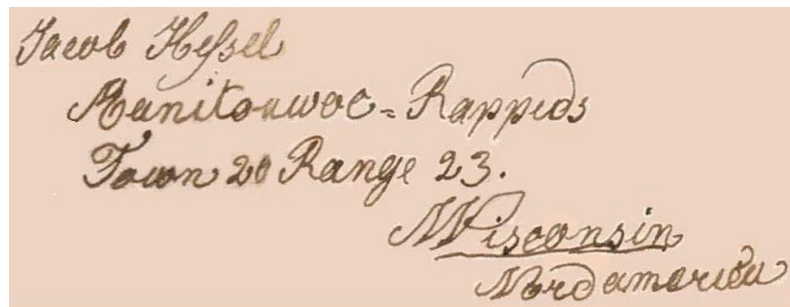 Jacob Heſsel
Manitouwoc = Rappids
Town 20 Range 23.
Wisconsin
Nordamerika